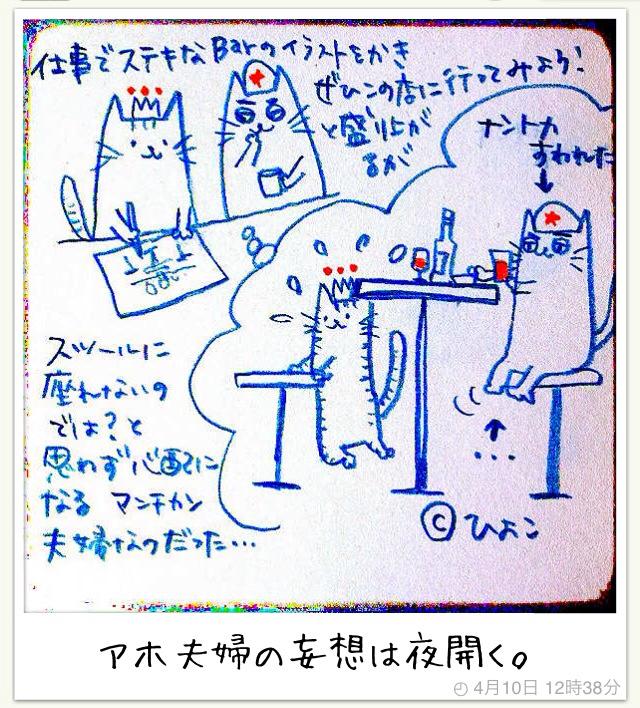 仕事でステキなBarのイラストをかき
ぜひこの店に行ってみよう!
と盛り上が
るが
ナントカ
すわれた
スツールに
座れないの
では?と
思わず心配に
なる マンチカン
夫婦なのだった…
...
©ひよこ
アホ夫婦の妄想は夜開く。
4月10日 12時38分